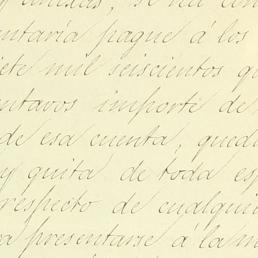 y anexas, se vea con
entaría pague á los
iete mil seiscientos qu
entavos importe de
de esa cuenta, queda
y quita de toda esp
respecto de cualqui
a presentarse á la m